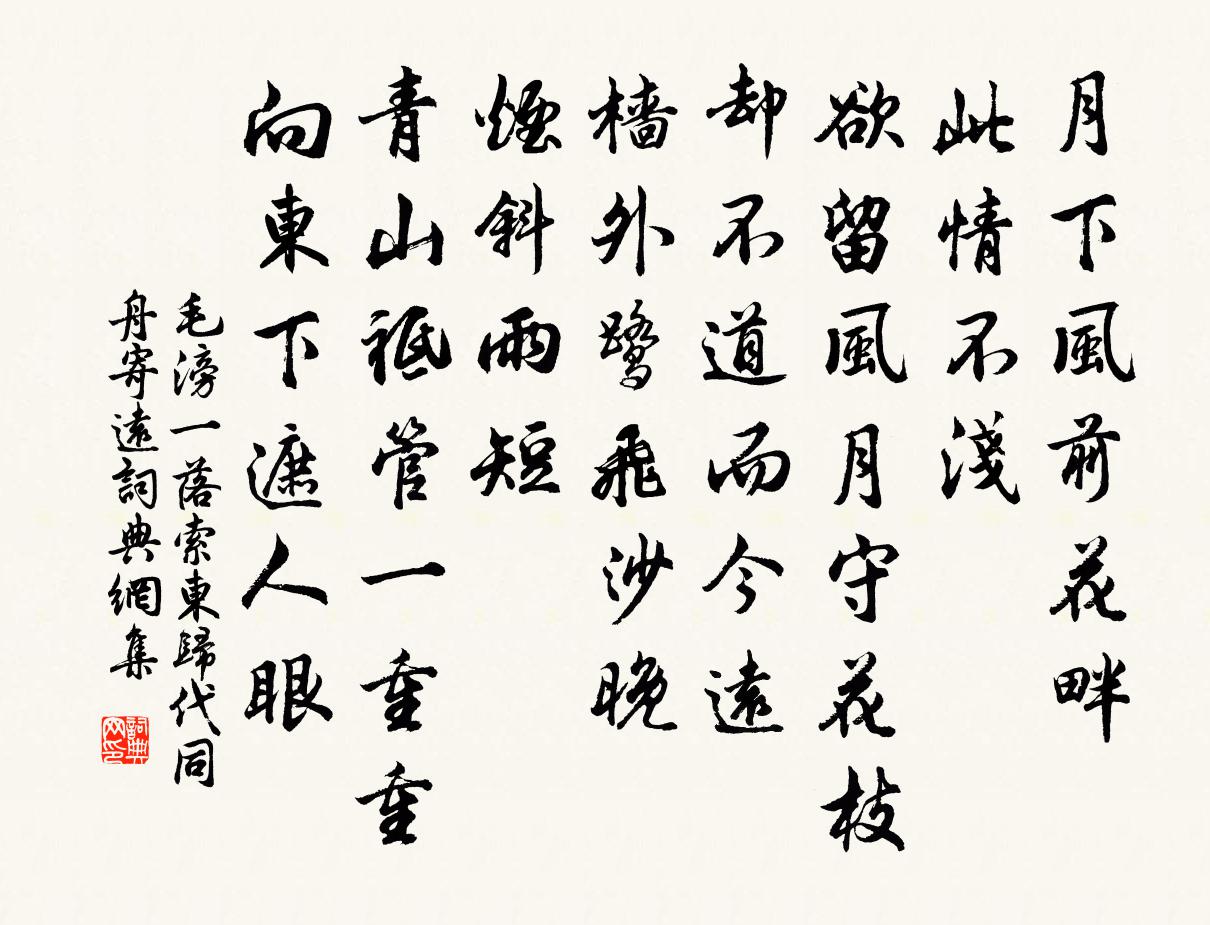 月下風前花畔
此情不淺
欲留風月守花枝
却不道而今遠
檣外鷺飛沙晚
煙斜雨短
青山祗管一重重
向東下遮人眼
毛滂一落索東歸代同
舟寄遠詞典網集
詞典网印